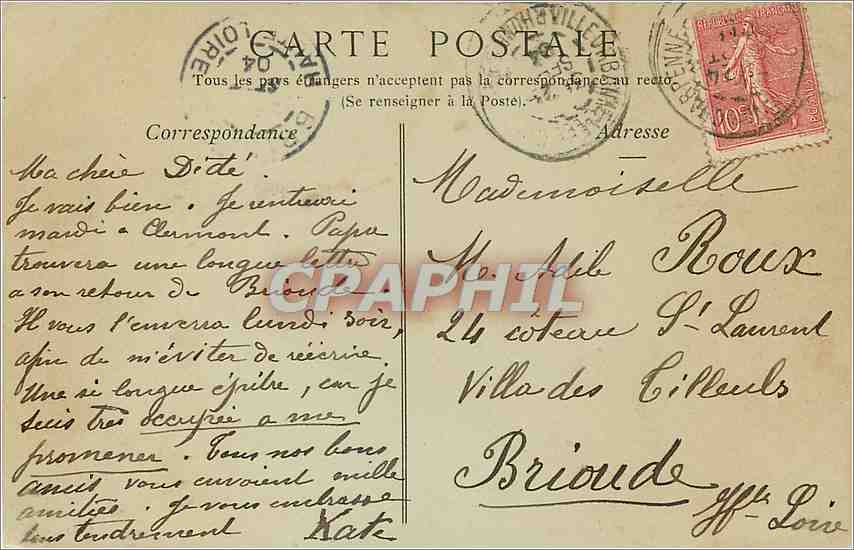 CARTE POSTALE
Tous les pays étrangers n'acceptent pas la correspondance au recto.
(Se renseigner à la Poste).
Correspondance
Ma chère Dédé.
Je vais bien. Je rentrerai
mardi a Clermont. Papa
trouvera une longue lettre
a son retour de Brioude.
Il vous l'enverra lundi soir,
afin de m'éviter de réécrire
Une si longue épitre, car je
suis tres occupée a me
promener. Tous nos bons
amis vous envoient mille
amitiés. Je vous embrasse
tous tendrement Kate
Adresse
Mademoiselle
M. Adile Roux
24 côteau St Laurent
Villa des Tilleuls
Brioude
Hte Loire
REPUBLIQUE FRANÇAISE
10
LOIRE
04
VILLEURBANNE
RHONE
CHARPENNES
CPAPHIL